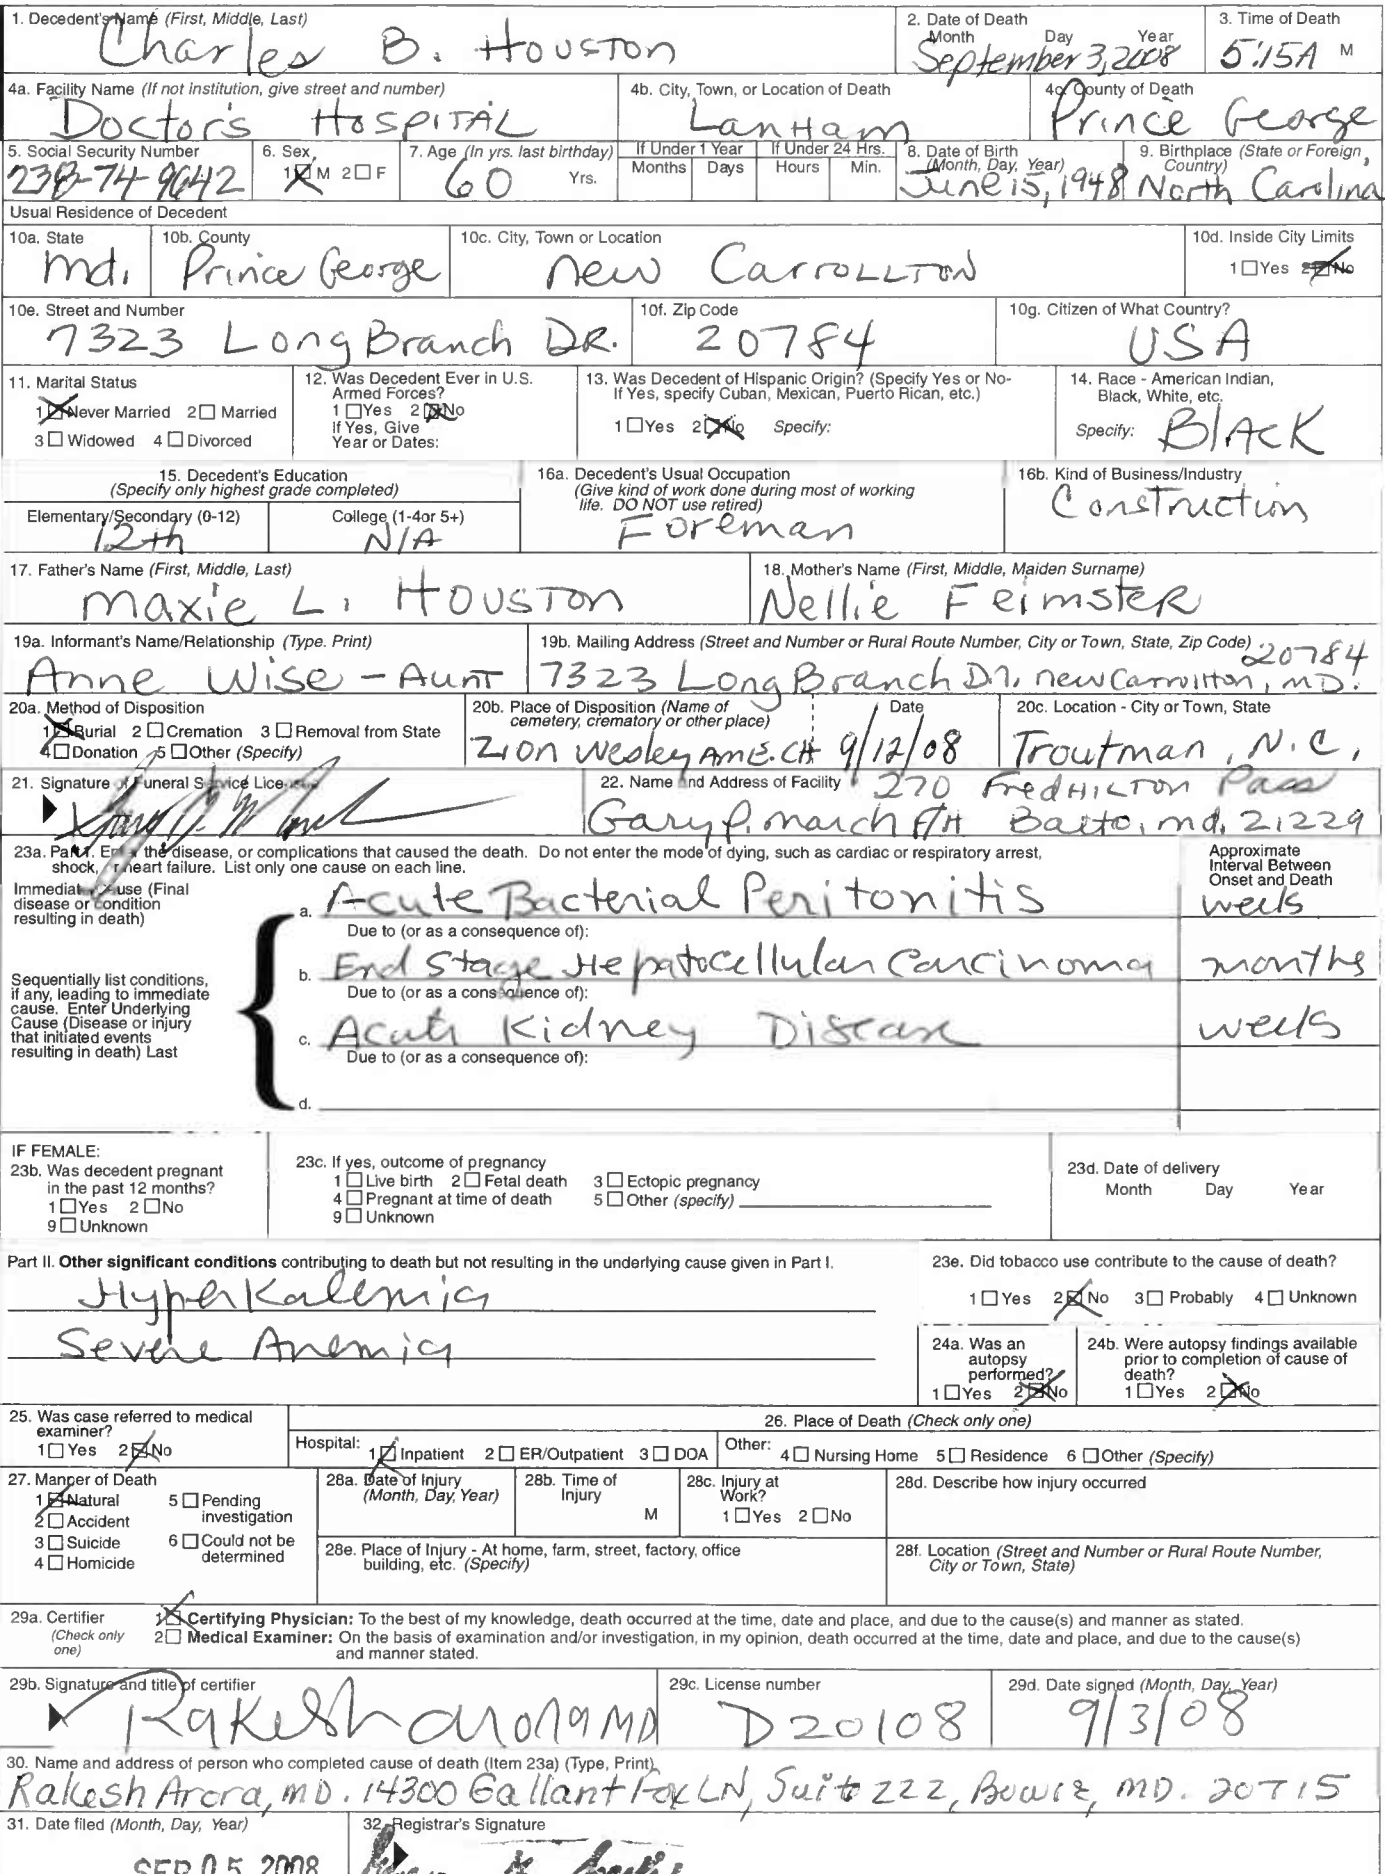 1. Decedent's Name (First, Middle, Last)
Charles B. Houston
2. Date of Death
Month Day Year
September 3, 2008
3. Time of Death
5:15A M
4a. Facility Name (If not institution, give street and number)
Doctor's Hospital
4b. City, Town, or Location of Death
Lanham
4c. County of Death
Prince George
5. Social Security Number
238-74-9642
6. Sex
1☒M 2☐F
7. Age (In yrs. last birthday)
60 Yrs.
If Under 1 Year
Months Days
If Under 24 Hrs.
Hours Min.
8. Date of Birth
(Month, Day, Year)
June 15, 1948
9. Birthplace (State or Foreign Country)
North Carolina
Usual Residence of Decedent
10a. State
Md.
10b. County
Prince George
10c. City, Town or Location
New Carrollton
10d. Inside City Limits
1☐Yes 2☒No
10e. Street and Number
7323 Long Branch DR.
10f. Zip Code
20784
10g. Citizen of What Country?
USA
11. Marital Status
1☒Never Married 2☐Married
3☐Widowed 4☐Divorced
12. Was Decedent Ever in U.S.
Armed Forces?
1☐Yes 2☒No
If Yes, Give
Year or Dates:
13. Was Decedent of Hispanic Origin? (Specify Yes or No-
If Yes, specify Cuban, Mexican, Puerto Rican, etc.)
1☐Yes 2☒No Specify:
14. Race - American Indian,
Black, White, etc.
Specify: Black
15. Decedent's Education
(Specify only highest grade completed)
Elementary/Secondary (0-12)
12th
College (1-4or 5+)
N/A
16a. Decedent's Usual Occupation
(Give kind of work done during most of working
life. DO NOT use retired)
Foreman
16b. Kind of Business/Industry
Construction
17. Father's Name (First, Middle, Last)
Maxie L. Houston
18. Mother's Name (First, Middle, Maiden Surname)
Nellie Feimster
19a. Informant's Name/Relationship (Type. Print)
Anne Wise - Aunt
19b. Mailing Address (Street and Number or Rural Route Number, City or Town, State, Zip Code)
20784
7323 Long Branch Dr. New Carrollton, MD.
20a. Method of Disposition
1☒Burial 2☐Cremation 3☐Removal from State
4☐Donation 5☐Other (Specify)
20b. Place of Disposition (Name of
cemetery, crematory or other place)
Zion Wesley AME. CH
Date
9/12/08
20c. Location - City or Town, State
Troutman, N.C.
21. Signature of Funeral Service Licensee
22. Name and Address of Facility
270 Fredhilton Pass
Gary P. March F/H Balto, md. 21229
23a. Part I. Enter the disease, or complications that caused the death. Do not enter the mode of dying, such as cardiac or respiratory arrest,
shock, or heart failure. List only one cause on each line.
Approximate
Interval Between
Onset and Death
Immediate Cause (Final
disease or condition
resulting in death)
a. Acute Bacterial Peritonitis
weeks
Due to (or as a consequence of):
Sequentially list conditions,
if any, leading to immediate
cause. Enter Underlying
Cause (Disease or injury
that initiated events
resulting in death) Last
b. End Stage Hepatocellular Carcinoma
months
Due to (or as a consequence of):
c. Acute Kidney Disease
weeks
Due to (or as a consequence of):
d.
IF FEMALE:
23b. Was decedent pregnant
in the past 12 months?
1☐Yes 2☐No
9☐Unknown
23c. If yes, outcome of pregnancy
1☐Live birth 2☐Fetal death 3☐Ectopic pregnancy
4☐Pregnant at time of death 5☐Other (specify)
9☐Unknown
23d. Date of delivery
Month Day Year
Part II. Other significant conditions contributing to death but not resulting in the underlying cause given in Part I.
Hyperkalemia
Severe Anemia
23e. Did tobacco use contribute to the cause of death?
1☐Yes 2☒No 3☐Probably 4☐Unknown
24a. Was an
autopsy
performed?
1☐Yes 2☒No
24b. Were autopsy findings available
prior to completion of cause of
death?
1☐Yes 2☒No
25. Was case referred to medical
examiner?
1☐Yes 2☒No
26. Place of Death (Check only one)
Hospital: 1☒Inpatient 2☐ER/Outpatient 3☐DOA
Other: 4☐Nursing Home 5☐Residence 6☐Other (Specify)
27. Manner of Death
1☒Natural 5☐Pending
investigation
2☐Accident
3☐Suicide 6☐Could not be
determined
4☐Homicide
28a. Date of Injury
(Month, Day, Year)
28b. Time of
Injury
M
28c. Injury at
Work?
1☐Yes 2☐No
28d. Describe how injury occurred
28e. Place of Injury - At home, farm, street, factory, office
building, etc. (Specify)
28f. Location (Street and Number or Rural Route Number,
City or Town, State)
29a. Certifier
(Check only
one)
1☒Certifying Physician: To the best of my knowledge, death occurred at the time, date and place, and due to the cause(s) and manner as stated.
2☐Medical Examiner: On the basis of examination and/or investigation, in my opinion, death occurred at the time, date and place, and due to the cause(s)
and manner stated.
29b. Signature and title of certifier
Rakesh Arora MD
29c. License number
D20108
29d. Date signed (Month, Day, Year)
9/3/08
30. Name and address of person who completed cause of death (Item 23a) (Type, Print)
Rakesh Arora, MD. 14300 Gallant Fox LN, Suite 222, Bowie, MD. 20715
31. Date filed (Month, Day, Year)
SEP 05 2008
32. Registrar's Signature